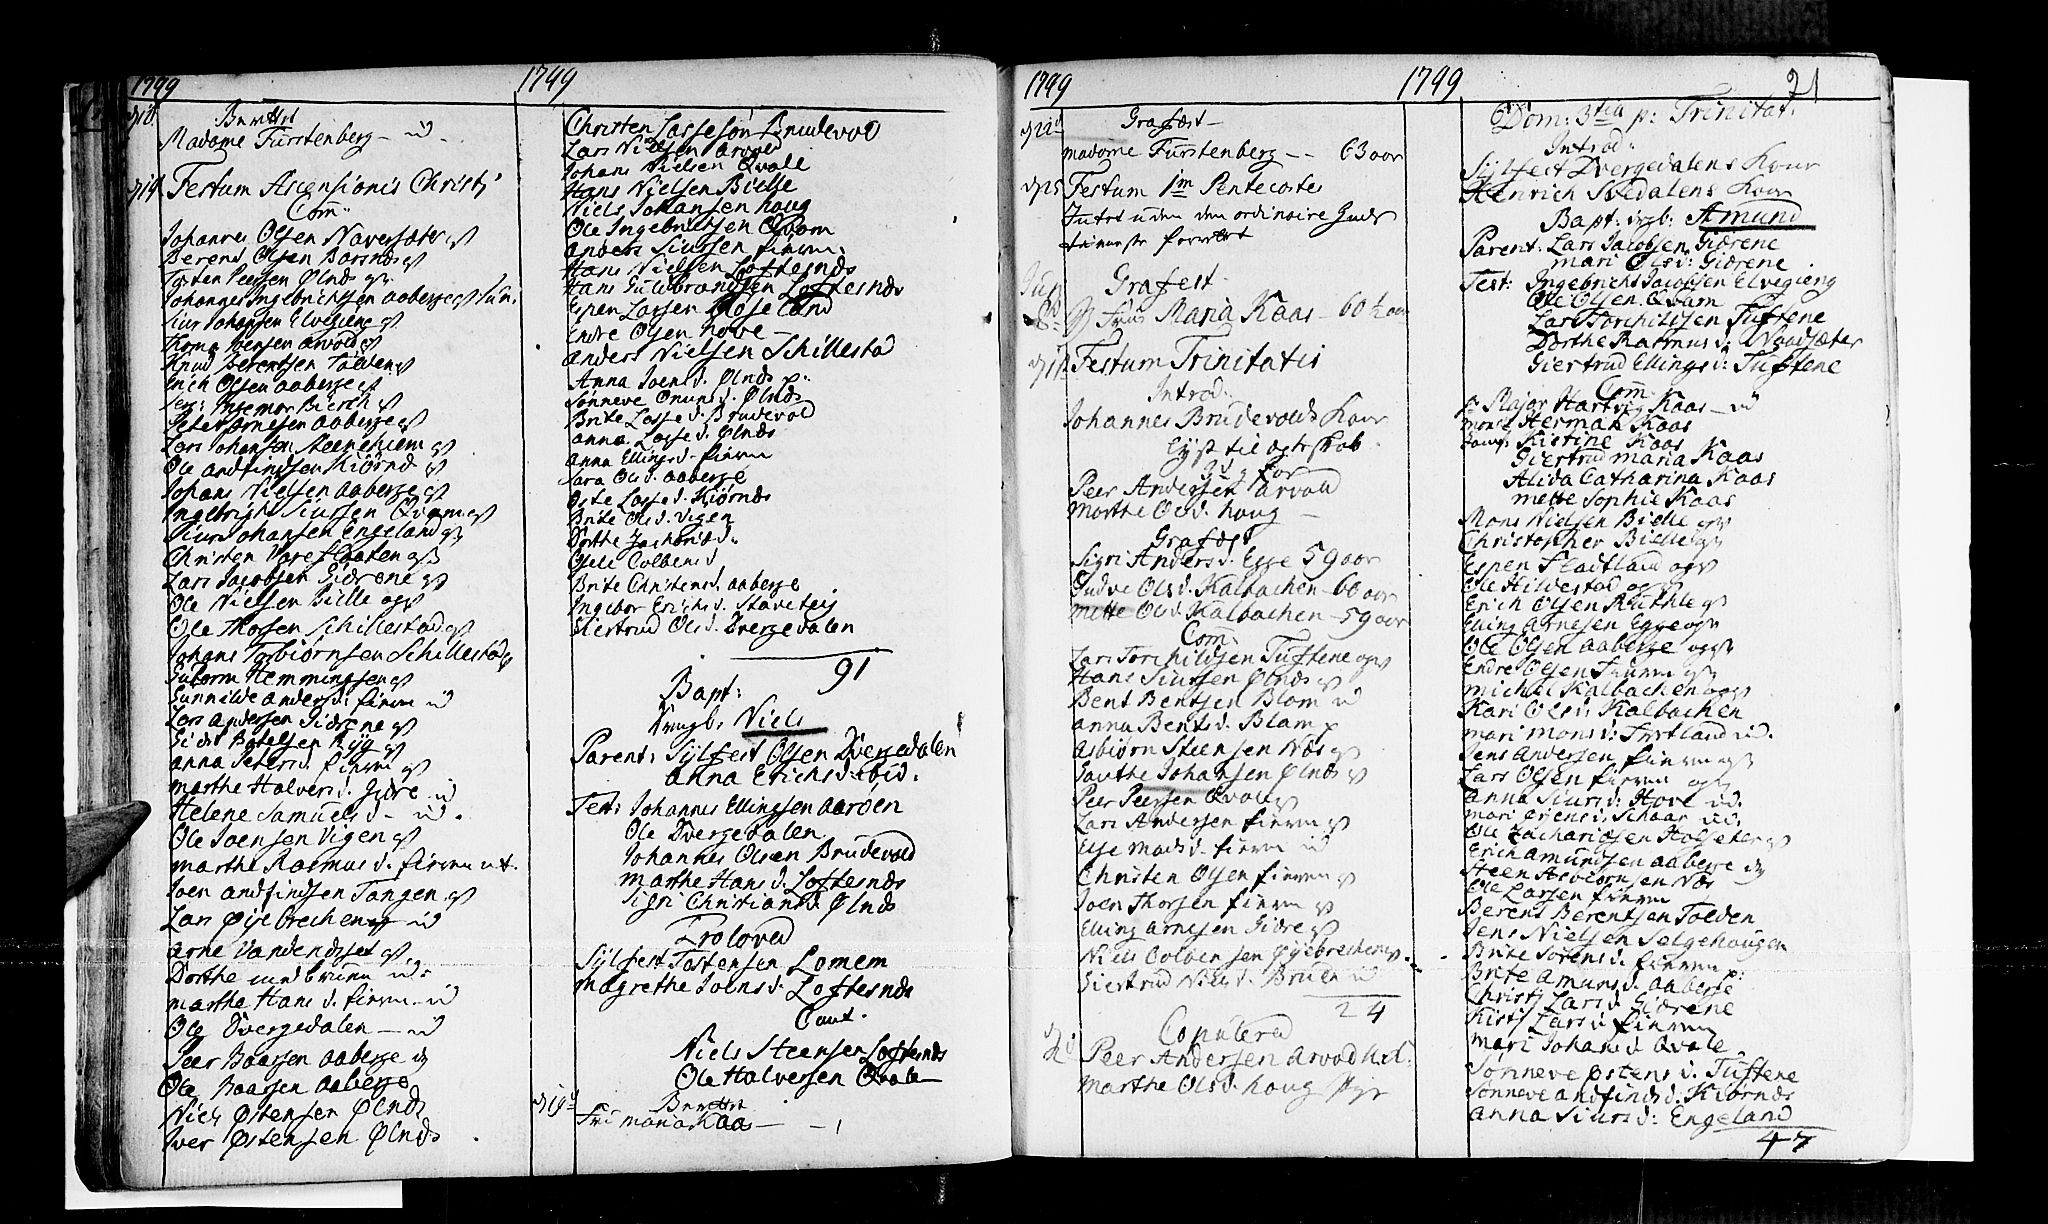 1799
1749
Madame Furstenberg - ud
Festum Ascensionis Christj
Com:
Johannes Olsen Naversæter
Berent Olsen Borsnæs
Johannes Ingebrichtsen aaberge
Siur Johansen Elvegiene
Knud Berentsen Tolden
Erich Olsen aaberge
Peter Arnesen aaberge
Lars Johansen Steenehiem
Ole andfindsen Kiørnæs
Johans Nielsen aaberge
Ingebright Siursen Qvam
Siur Johansen Engeland
Christen
Lars Jacobsen Gidrene
Ole Nielsen Bielle og
Ole Thorsen Schillestad
Johans Torbiørnsen Schillestad
Guttorm Hemmingsen
Gunnilde anders d: finnen ud
Lars andersen Gidrene
anna Peters d. finnen
marthe Halvers d. Gidre ud
Helene Samuels d - ud.
Ole Joensen Vigen
marthe Rasmus d. finnen
Joen andfindsen Tangen
Lars Øyebrechen ud
arne Vandendset
Dorthe
marthe Hans d. finnen ud
Ole Dvergedalen - ud
Peer Baarsen aaberge
Ole Baarsen aaberge
Niels Østensen Ølnæs
Iver Østensen Ølnæs
Christen Lassesøn Brudevold
Lars Nielsen arvold
Johans Nielsen Qvale
Hans Nielsen Bielle
Niels Johansen houg
Ole Ingebrigtsen Qvam
anders Siursen finnen
Hans Nielsen Loftesnæs
Hans Gulbrandsen Loftesnæs
Espen Larsen
Endre Olsen hove
anders Nielsen Schillestad
Anna Joens d. Ølnæs
Sønneve Omunds d. Ølnæs
Brite Lasse d. Brudevold
anna Lasse d. Ølnæs
Anna Ellings d. finnen
Sara Ols d. aaberge
Oste Lasse d. Kiørnæs
Brite Ols d. Vigen
Dorthe Zacharias d.
Brite Christens d. aaberge
Ingebor Erichs d. Staveteig
Giertrud Ols d. Dvergedalen
91
Bapt:
Niels
Parent: Sylfest Olsen Dvergedalen
anna Erichs d. ibid.
Test: Johannes Ellingsen aarøen
Ole Dvergedalen
Johannes Olsen Brudevold
Marthe Hans d. Loftesnæs
Sigri Christians d. Ølnæs
Troloved
Sylfest Tostensen Lomem
Magrethe Joens d. Loftesnæs
Caut.
Niels Steensen Loftesnæs
Ole Halversen Qvale
d 19d
Fru maria Kaas
1799
1749
21
d 22d
Grafæst
madame Furstenberg - - 63 aar
Festum 1m Pentecostes
Intet uden den ordinaire Guds
tieneste forrettet
Grafest.
Fru Maria Kaas - 60 1/2 aar
Festum Trinitatis
Introd.
Johannes Brudevolds Kone
Lyst til ægteskab
3d g for
Peer Andersen arvold
Marthe Ols d. houg
Grafæst
Sigri Anders d. Egge 59 aar
Ols d. Kalbachen - 60 aar
mette Ols d. Kalbachen - 59 aar
Com:
Lars Torchildsen Tuftene
Hans Siursen Ølnæs
Bent Bentsen Blom ud
anna Bents d. Blom
Asbiørn Steensen Næs
Gauthe Johansen Ølnæs
Peer Peersen Qvale
Lars Andersen finnen
Else Mads d. finnen ud
Christen Olsen finnen
Joen Thorsen finnen
Elling Arnesen Gidre
Niels Colbensen Øyebrechen
Giertrud Niels d. Bruen ud
24
Copulered
Peer Andersen arvold
Marthe Ols d. houg
Dom: 3tia p: Trinitat.
Introd:
Sylfest Dvergedalens Kone
Henrich Stedalens Kone
Bapt: Amund
Parent: Lars Jacobsen Gidrene
mari Ols d: Gidrene
Test: Ingebricht Jacobsen Elvegieng
Ole Olsen Qvam
Lars Torchildsen Tuftene
Dorthe Rasmus d: Navdsæter
Giertrud Ellings d: Tuftene
Com
Major Hartvig Kaas - ud
Herman Kaas
Kistine Kaas
Giertrud maria Kaas
Alida Catharina Kaas
mette Sophie Kaas
Mons Nielsen Bielle
Christopher Bielle
Espen Stadtland
Ole Hildestad
Erich Olsen
Elling Arnesen Egge
Ole Olsen aaberge
Endre Olsen finnen
michel Kalbachen
Kari Ols d. Kalbachen
mari Mons d: ud.
Jens Andersen finnen
Lars Olsen finnen
anna Siurs d: Hove ud.
mari d. Schaar ud.
Ole Zachariasen Holseter
Erich Amundsen aaberge
Steen Asbiørnsen Næs
Ole Larsen finnen
Berent Berentsen Tolden
Jens Nielsen Selgehougen
Brite Sørens d. finnen
Brite Amuns d. aaberge
Christj Lars d. Gidrene
Kistj Lars d finnen
Mari Johans d Qvale
Sønneve Østens d. Tuftene
Sønneve andfinds d. Kiørnæs
anna Siurs d: Engeland
47